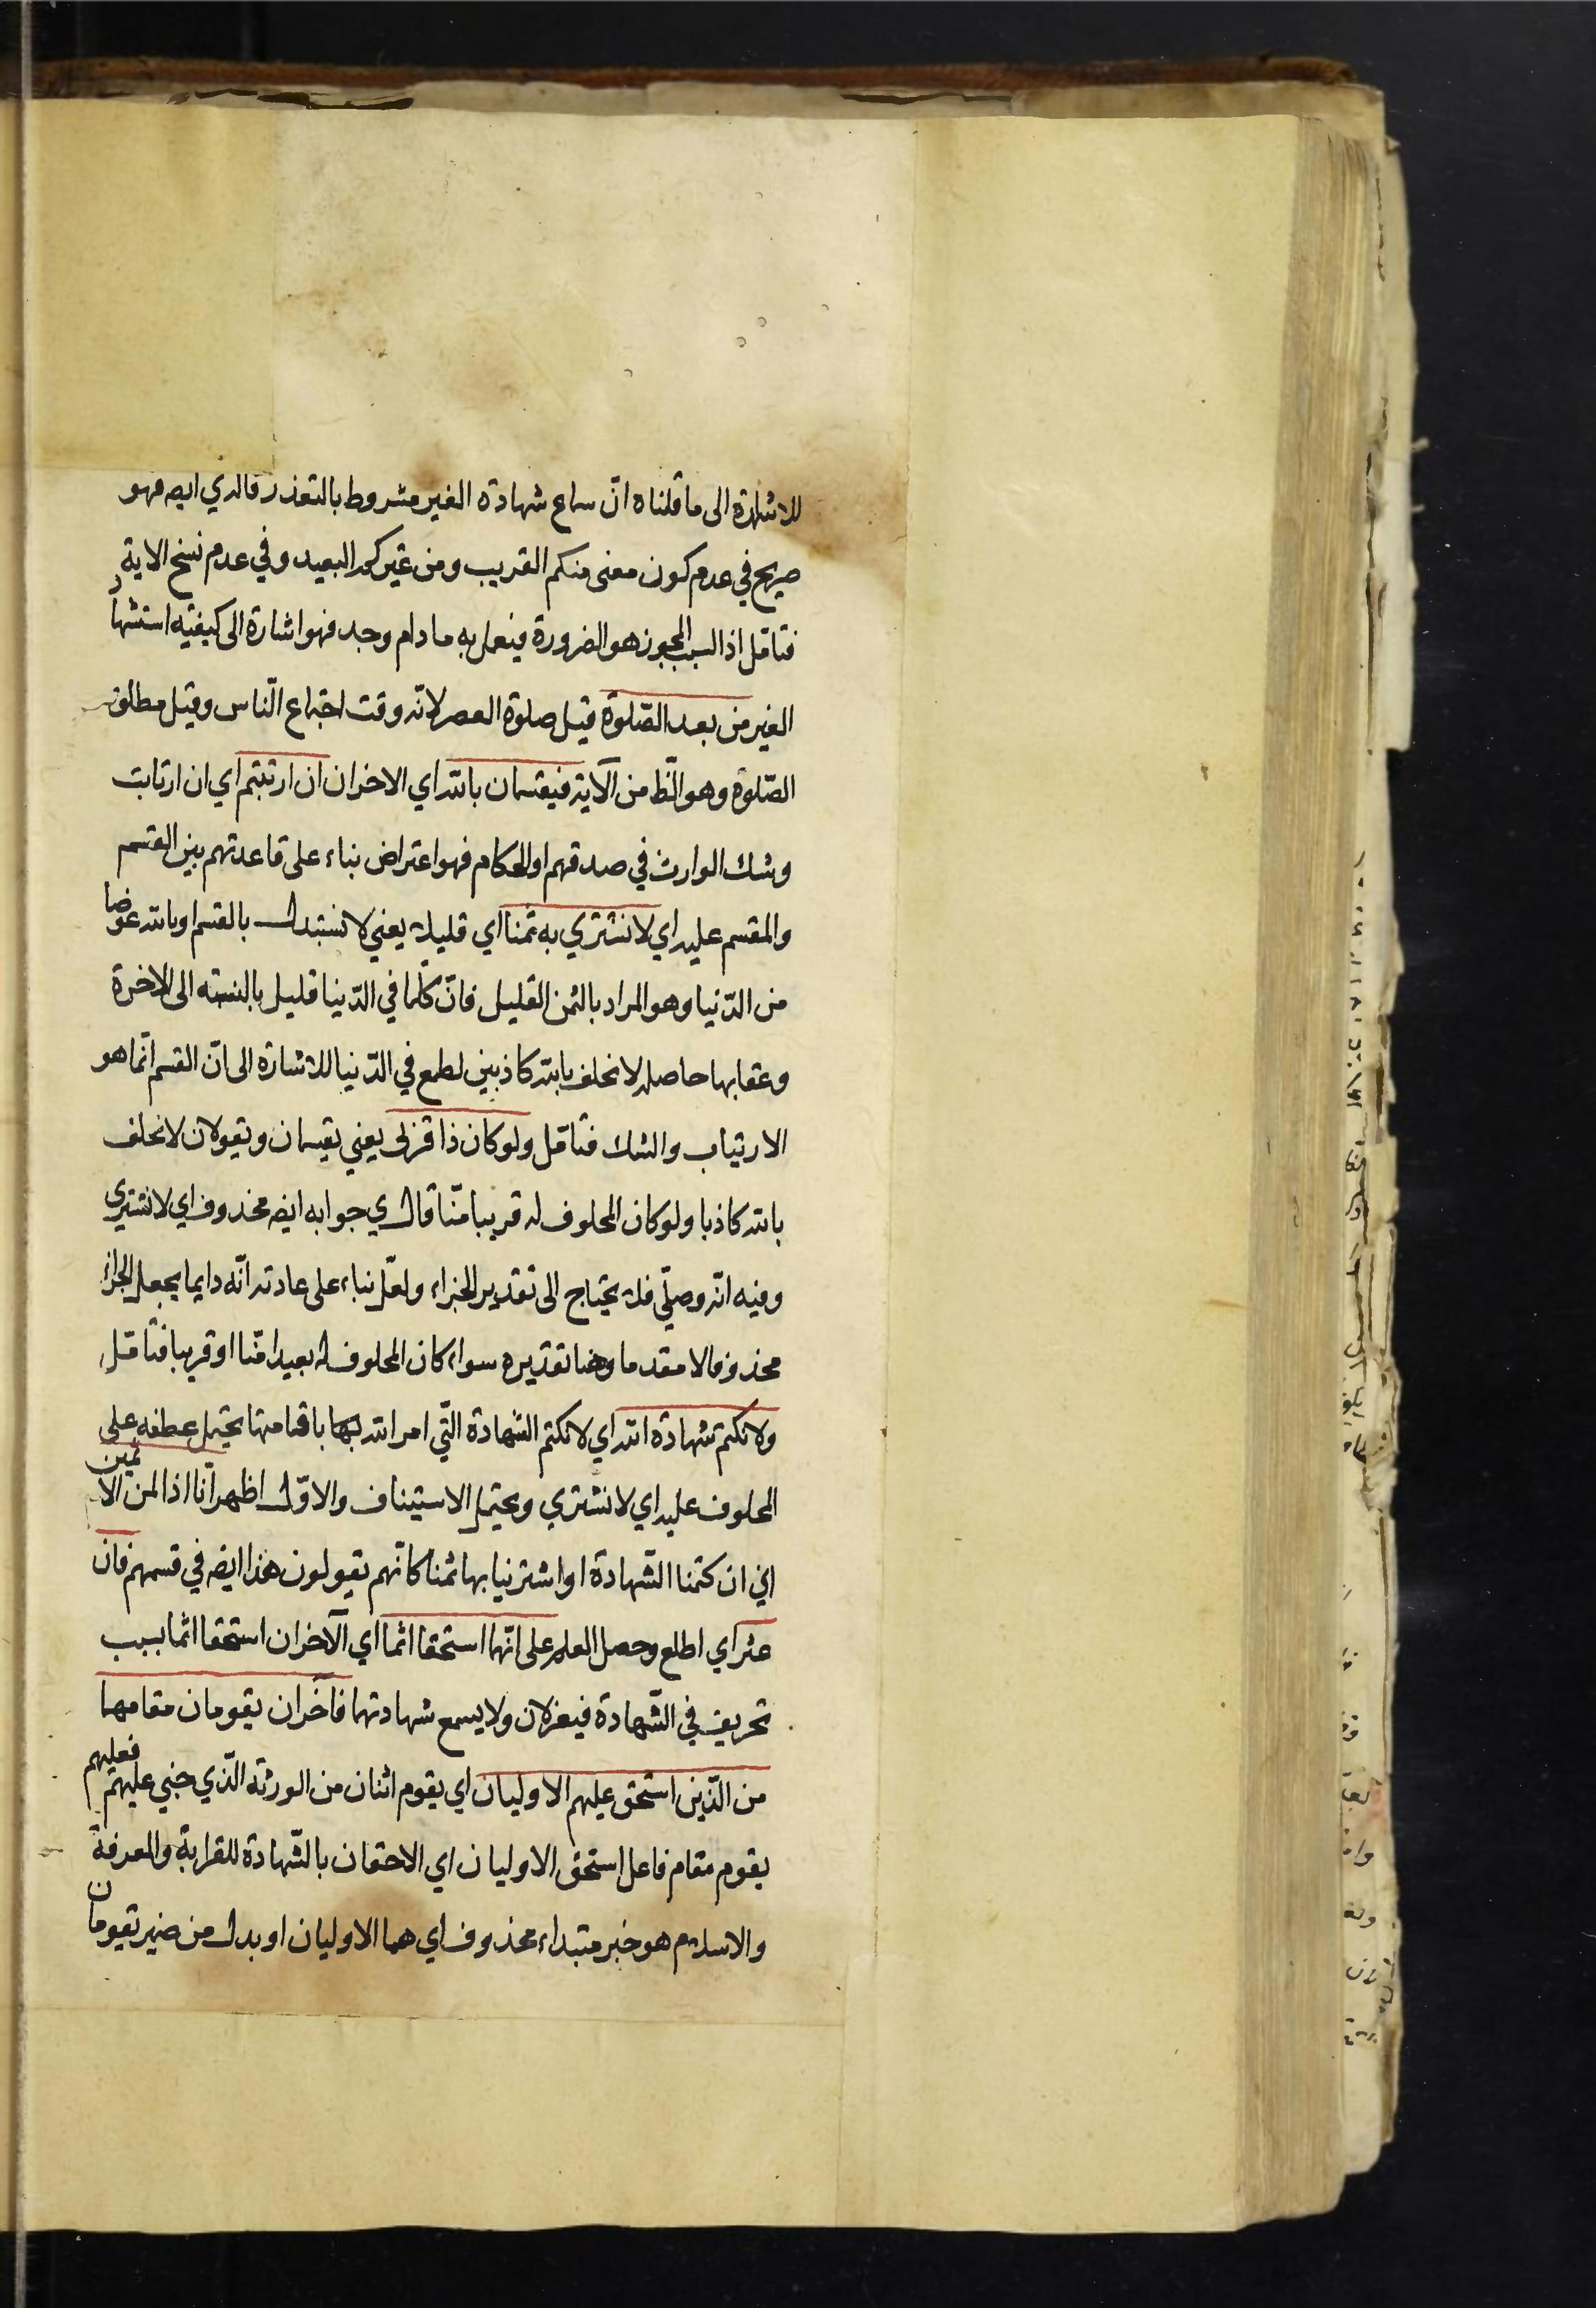 للاشارة الى ما قلناه انّ سماع شهادة الغير مشروط بالتعذر قاله ي ايضه فهو
صريح في عدم كون معنى منكم القريب ومن غيركم البعيد وفي عدم نسخ الاية
فتامّل اذ السبب المجوز هو الضرورة فيعمل به مادام وجد فهو اشارة الى كيفيته استشهاد
الغير من بعد الصّلوة قيل صلوة العصر لانّه وقت اجتماع النّاس وقيل مطلق
الصّلوة وهو الظ من الآية فيقسمان بالله اي الاخران ان ارتبتم اي ان ارتابت
وشك الوارث في صدقهم او الحكام فهو اعتراض بناء على قاعدتهم بين القسم
والمقسم عليه اي لا نشتري به ثمنا اي قليلا يعني لا نستبدل بالقسم او بالله عوضا
من الدّنيا وهو المراد بالثمن القليل فانّ كلما في الدّنيا قليل بالنسبته الى الاخرة
وعقابها حاصله لا نحلف بالله كاذبين لطمع في الدّنيا للاشارة الى انّ القسم انّما هو
الارتياب والشك فتامّل ولو كان ذا قربى يعني يقسمان ويقولان لا نحلف
بالله كاذبا ولو كان المحلوف له قريبا منّا قال ي جوابه ايضه محذوف اي لا نشتري
وفيه انّه وصلّي فلا يحتاج الى تقدير الجزاء ولعلّ بناء على عادته انّه دايما يجعل الجزاء
محذوفا لا مقدما وهنا تقديره سواء كان المحلوف له بعيدا منّا او قريبا فتامّل
ولا نكتم شهادة الله اي لا نكتم الشهادة الّتي امر الله بها باقامتها يحتمل عطفه على
المحلوف عليه اي لا نشتري ويحتمل الاستيناف والاوّل اظهر انّا اذا لمن الاثمين
اي ان كتمنا الشّهادة او اشترينا بها ثمنا كانّهم يقولون هذا ايضه في قسمهم فان
عثر اي اطلع وحصل العلم على انّهما استحقا اثما اي الآخران استحقا اثما بسبب
تحريف في الشّهادة فيعزلان ولا يسمع شهادتهما فآخران يقومان مقامهما
من الّذين استحق عليهم الاوليان اي يقوم اثنان من الورثة الّذي جني عليهم فعليهم
يقوم مقام فاعل استحق الاوليان اي الاحقان بالشّهادة للقرابة والمعرفة
والاسلام هو خبر مبتداء محذوف اي هما الاوليان او بدل من ضمير يقومان